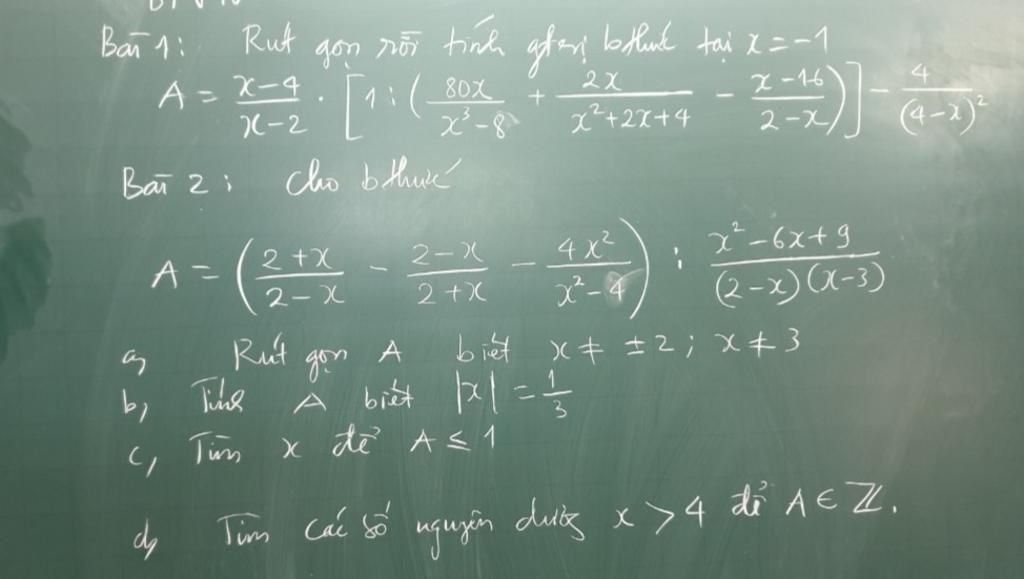 Bài 1: Rút gọn rồi tính gtrị bthức tại x = -1
A = \frac{x-4}{x-2} . [1 : (\frac{80x}{x^3-8} + \frac{2x}{x^2+2x+4} - \frac{x-16}{2-x})] - \frac{4}{(4-x)^2}
Bài 2: Cho bthức
A = (\frac{2+x}{2-x} - \frac{2-x}{2+x} - \frac{4x^2}{x^2-4}) : \frac{x^2-6x+9}{(2-x)(x-3)}
a, Rút gọn A biết x ≠ ±2; x ≠ 3
b, Tính A biết |x| = \frac{1}{3}
c, Tìm x để A ≤ 1
d, Tìm các số nguyên dương x > 4 để A ∈ ℤ.